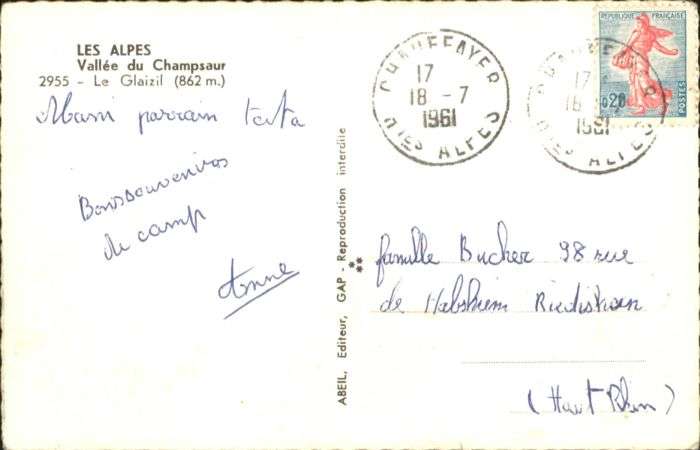 LES ALPES
Vallée du Champsaur
2955 - Le Glaizil (862 m.)
Mami parrain tata
Bons souvenirs
du camp
Anne
ABEIL, Editeur, GAP - Reproduction interdite
CHAUFFAYER
17
18 - 7
1961
Htes ALPES
REPUBLIQUE FRANÇAISE
0,20
POSTES
CHAUFFAYER
17
18 - 7
1961
Htes ALPES
famille Bucher 98 rue
de Habsheim Riedisheim
(Haut Rhin)